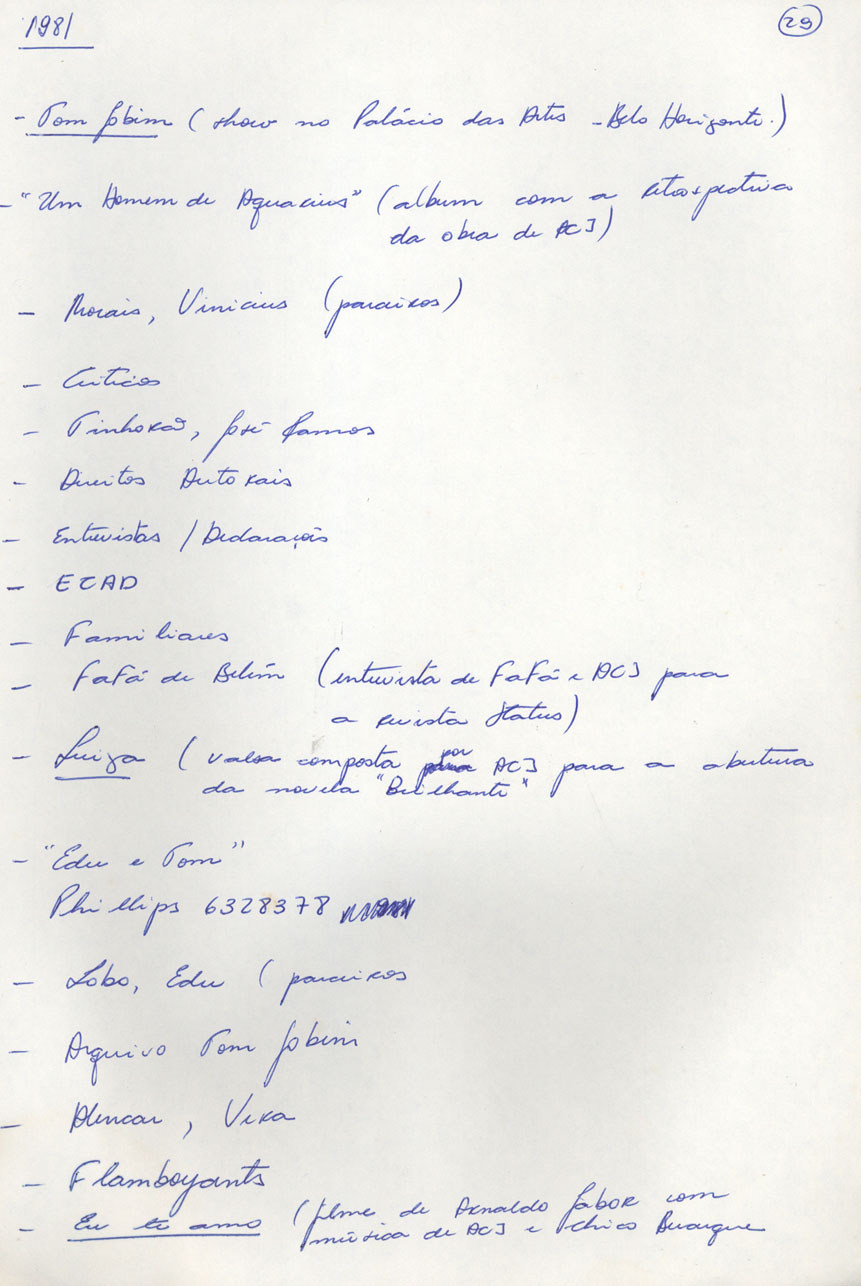 1981
29
- Tom Jobim (show no Palácio das Artes - Belo Horizonte.)
- "Um Homem de Aquarius" (album com a retrospectiva
da obra de ACJ)
- Morais, Vinicius (parceiros)
- Críticos
- Tinhorão, José Ramos
- Direitos Autorais
- Entrevistas / Declarações
- ECAD
- Familiares
- Fafá de Belém (entrevista de Fafá e ACJ para
a revista Status)
- Luiza (valsa composta por ACJ para a abertura
da novela "Brilhante"
- "Edu e Tom"
Phillips 6328378
- Lobo, Edu (parceiros
- Arquivo Tom Jobim
- Alencar, Vera
- Flamboyants
- Eu te amo (filme de Arnaldo Jabor com
música de ACJ e Chico Buarque